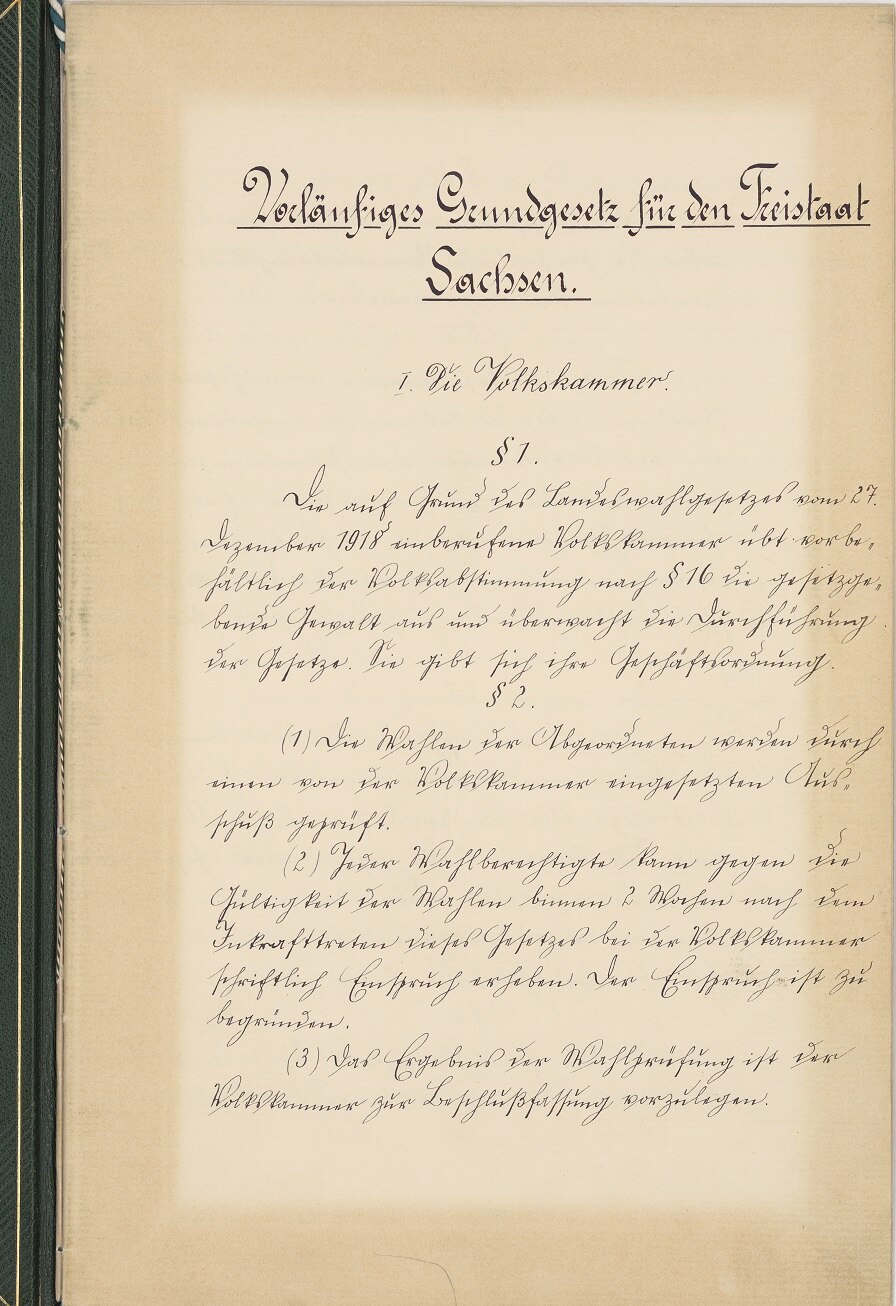 Vorläufiges Grundgesetz für den Freistaat
Sachsen.
I. Die Volkskammer.
§ 1.
Die auf Grund des Landeswahlgesetzes vom 27.
Dezember 1918 einberufene Volkskammer übt vorbe-
hältlich der Volksabstimmung nach § 16 die gesetzge-
bende Gewalt aus und überwacht die Durchführung
der Gesetze. Sie gibt sich ihre Geschäftsordnung.
§ 2.
(1) Die Wahlen der Abgeordneten werden durch
einen von der Volkskammer eingesetzten Aus-
schuß geprüft.
(2) Jeder Wahlberechtigte kann gegen die
Gültigkeit der Wahlen binnen 2 Wochen nach dem
Inkrafttreten dieses Gesetzes bei der Volkskammer
schriftlich Einspruch erheben. Der Einspruch ist zu
begründen.
(3) Das Ergebnis der Wahlprüfung ist der
Volkskammer zur Beschlußfassung vorzulegen.